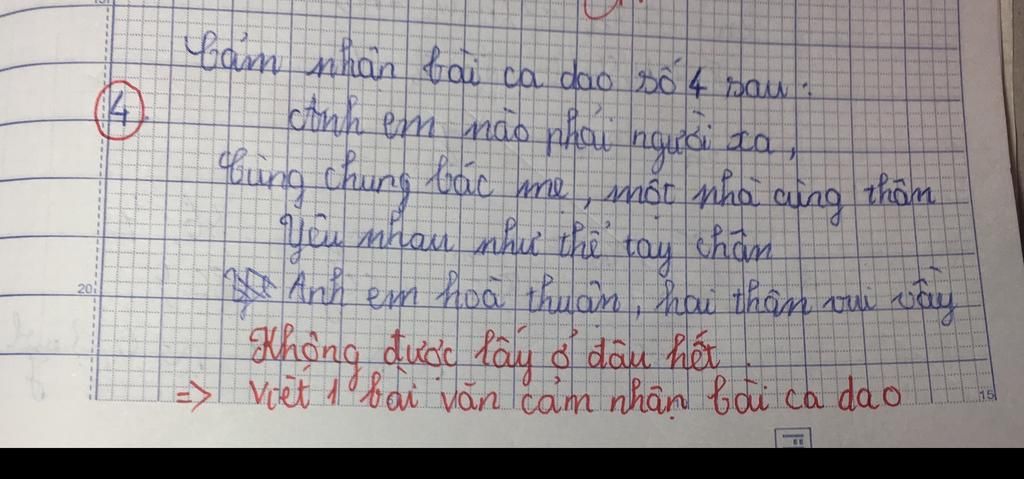 Cảm nhận bài ca dao số 4 sau:
4 Anh em nào phải người xa,
Cùng chung bác mẹ, một nhà cùng thân
Yêu nhau như thể tay chân
Anh em hoà thuận, hai thân vui vầy
20
Không được lấy ở đâu hết.
=> Viết 1 bài văn cảm nhận bài ca dao
15